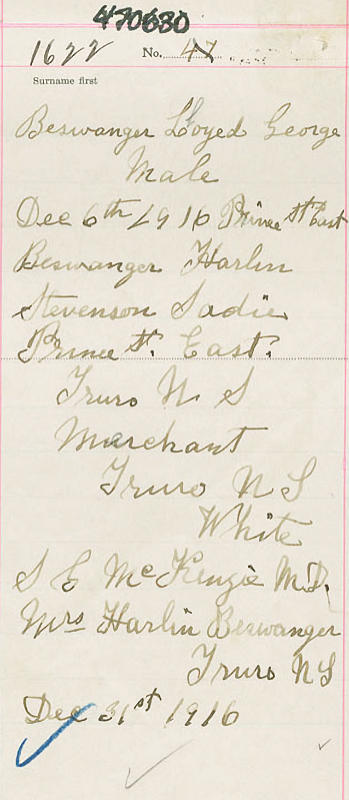 470630
1622 No. 47
Surname first
Beswanger Lloyed George
Male
Dec 6th 1916 Prince St East
Beswanger Harlin
Stevenson Sadie
Prince St. East.
Truro N S
Merchant
Truro N S
White
S E McKenzie M.D.
Mrs Harlin Beswanger
Truro NS
Dec 31st 1916